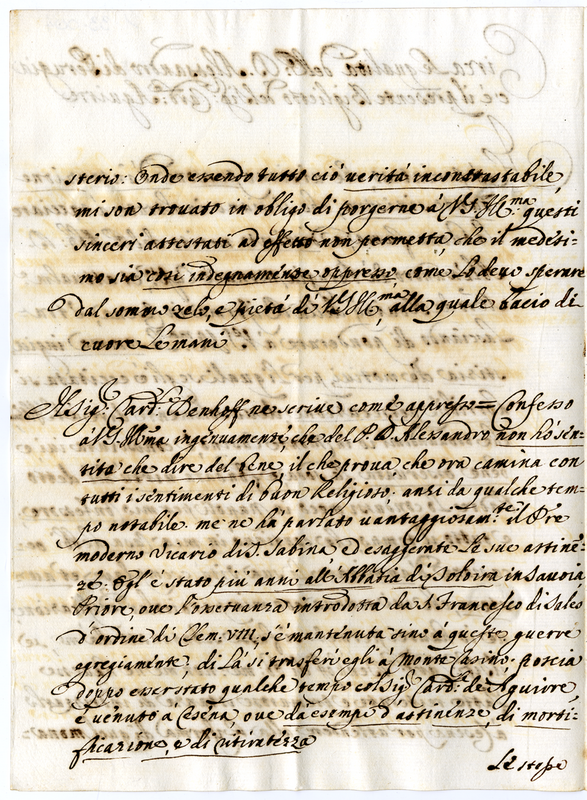 sterio: Onde essendo tutto ciò verità incontrastabile,
mi son trovato in obligo di porgerne à V.S. Ill.ma questi
sinceri attestati ad effetto non permetta, che il medesi-
mo sia così indegnamente oppresso come lo devo sperare
dal sommo zelo, e pietà di V.S. Ill.ma, alla quale bacio di
cuore le mani
Il Sig.r Card.le Denhoff ne scrive come appresso = Confesso
à V.S. Ill.ma ingenuamente, che del P. D. Alessandro non hò sen-
tito che dire del bene, il che prova che ora camina con
tutti i sentimenti di buon Religioso, anzi da qualche tem-
po notabile me ne hà parlato vantaggiosam.te il Pre
moderno Vicario di S. Sabina ed esaggerate le sue astinen-
ze. Egl' è stato più anni all' Abbazia di in Savoia
Priore, ove l'osservanza introdotta da S. Francesco di Sales
d'ordine di Clem: VIII, s'è mantenuta sino à queste guerre
egregiamente, di là si trasferì egli à Monte Casino poscia
doppo esser stato qualche tempo col Sig.r Card.le de Aguirre
è venuto à Cesena, ove dà esempi d'astinenze, di morti-
ficazione, e di ritiratezza